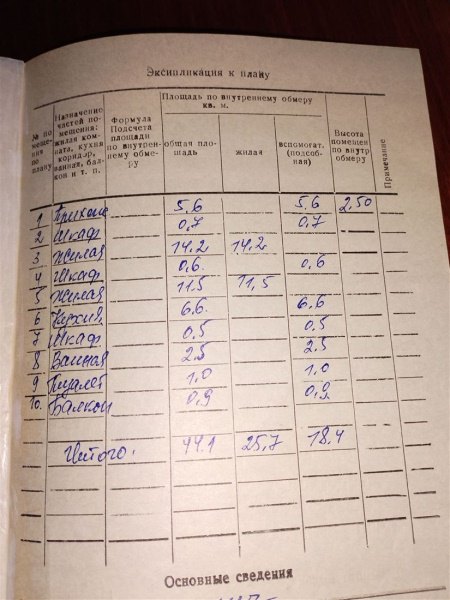 Экспликация к плану
№ по помещения по плану
Назначение частей помещения: жилая комната, кухня коридор, ванная, балкон и т. п.
Формула Подсчета площади по внутреннему обмеру
Площадь по внутреннему обмеру кв. м.
общая площадь
жилая
вспомогат. (подсобная)
Высота помещен по внутр обмеру
Примечание
1 Прихож 5,6 5,6 2,50
2 Шкаф 0,7 0,7
3 Жилая 14,2 14,2
4 Шкаф 0,6 0,6
5 Жилая 11,5 11,5
6 Кухня 6,6 6,6
7 Шкаф 0,5 0,5
8 Ванная 2,5 2,5
9 Туалет 1,0 1,0
10. Балкон 0,9 0,9
Итого. 44,1 25,7 18,4
Основные сведения